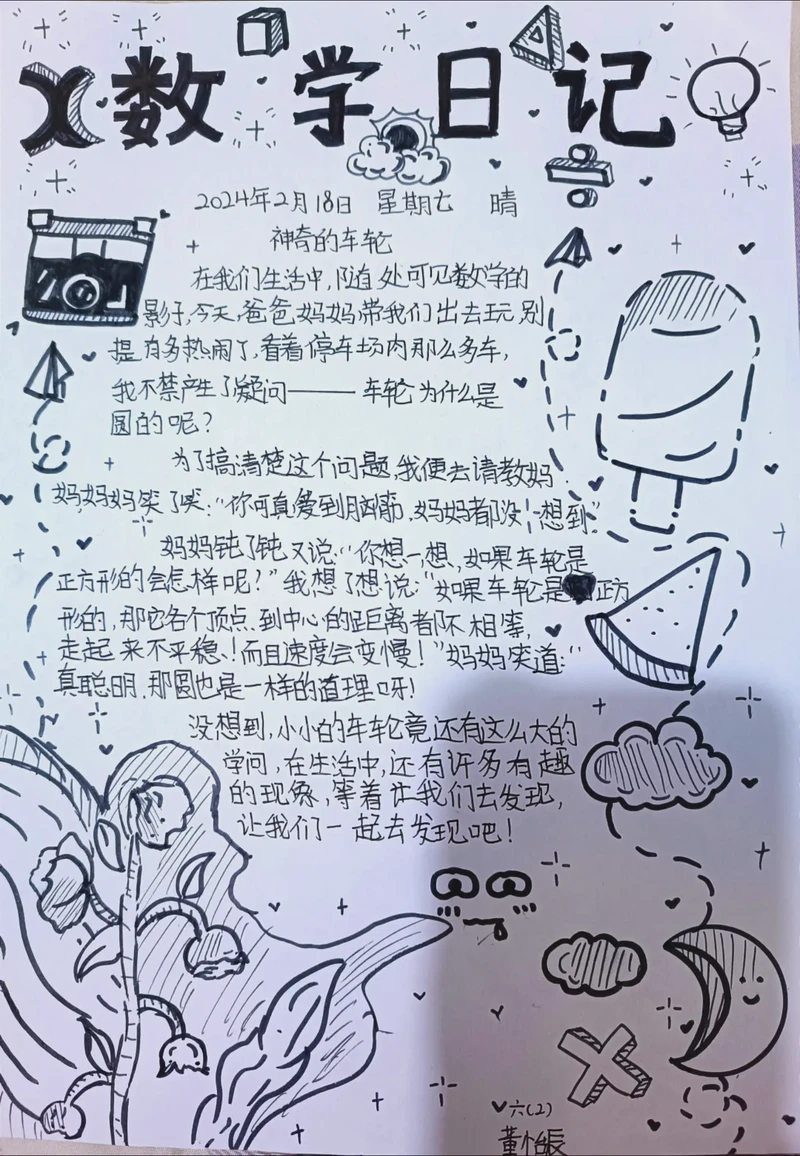 数学日记
2024年2月18日 星期七 晴
神奇的车轮
在我们生活中,随处可见数学的
影子,今天,爸爸妈妈带我们出去玩,别
提有多热闹了,看着停车场内那么多车,
我不禁产生了疑问——车轮为什么是
圆的呢?
为了搞清楚这个问题,我便去请教妈
妈,妈妈笑了笑:“你可真爱动脑筋,妈妈都没想到”
妈妈钝了钝又说:“你想一想,如果车轮是
正方形的会怎样呢?”我想了想说:“如果车轮是正方
形的,那它各个顶点到中心的距离都不相等,
走起来不平稳!而且速度会变慢!”妈妈笑道:“
真聪明,那圆也是一样的道理呀!
没想到,小小的车轮竟还有这么大的
学问,在生活中,还有许多有趣
的现象,等着让我们去发现,
让我们一起去发现吧!
六(2)
董怡辰